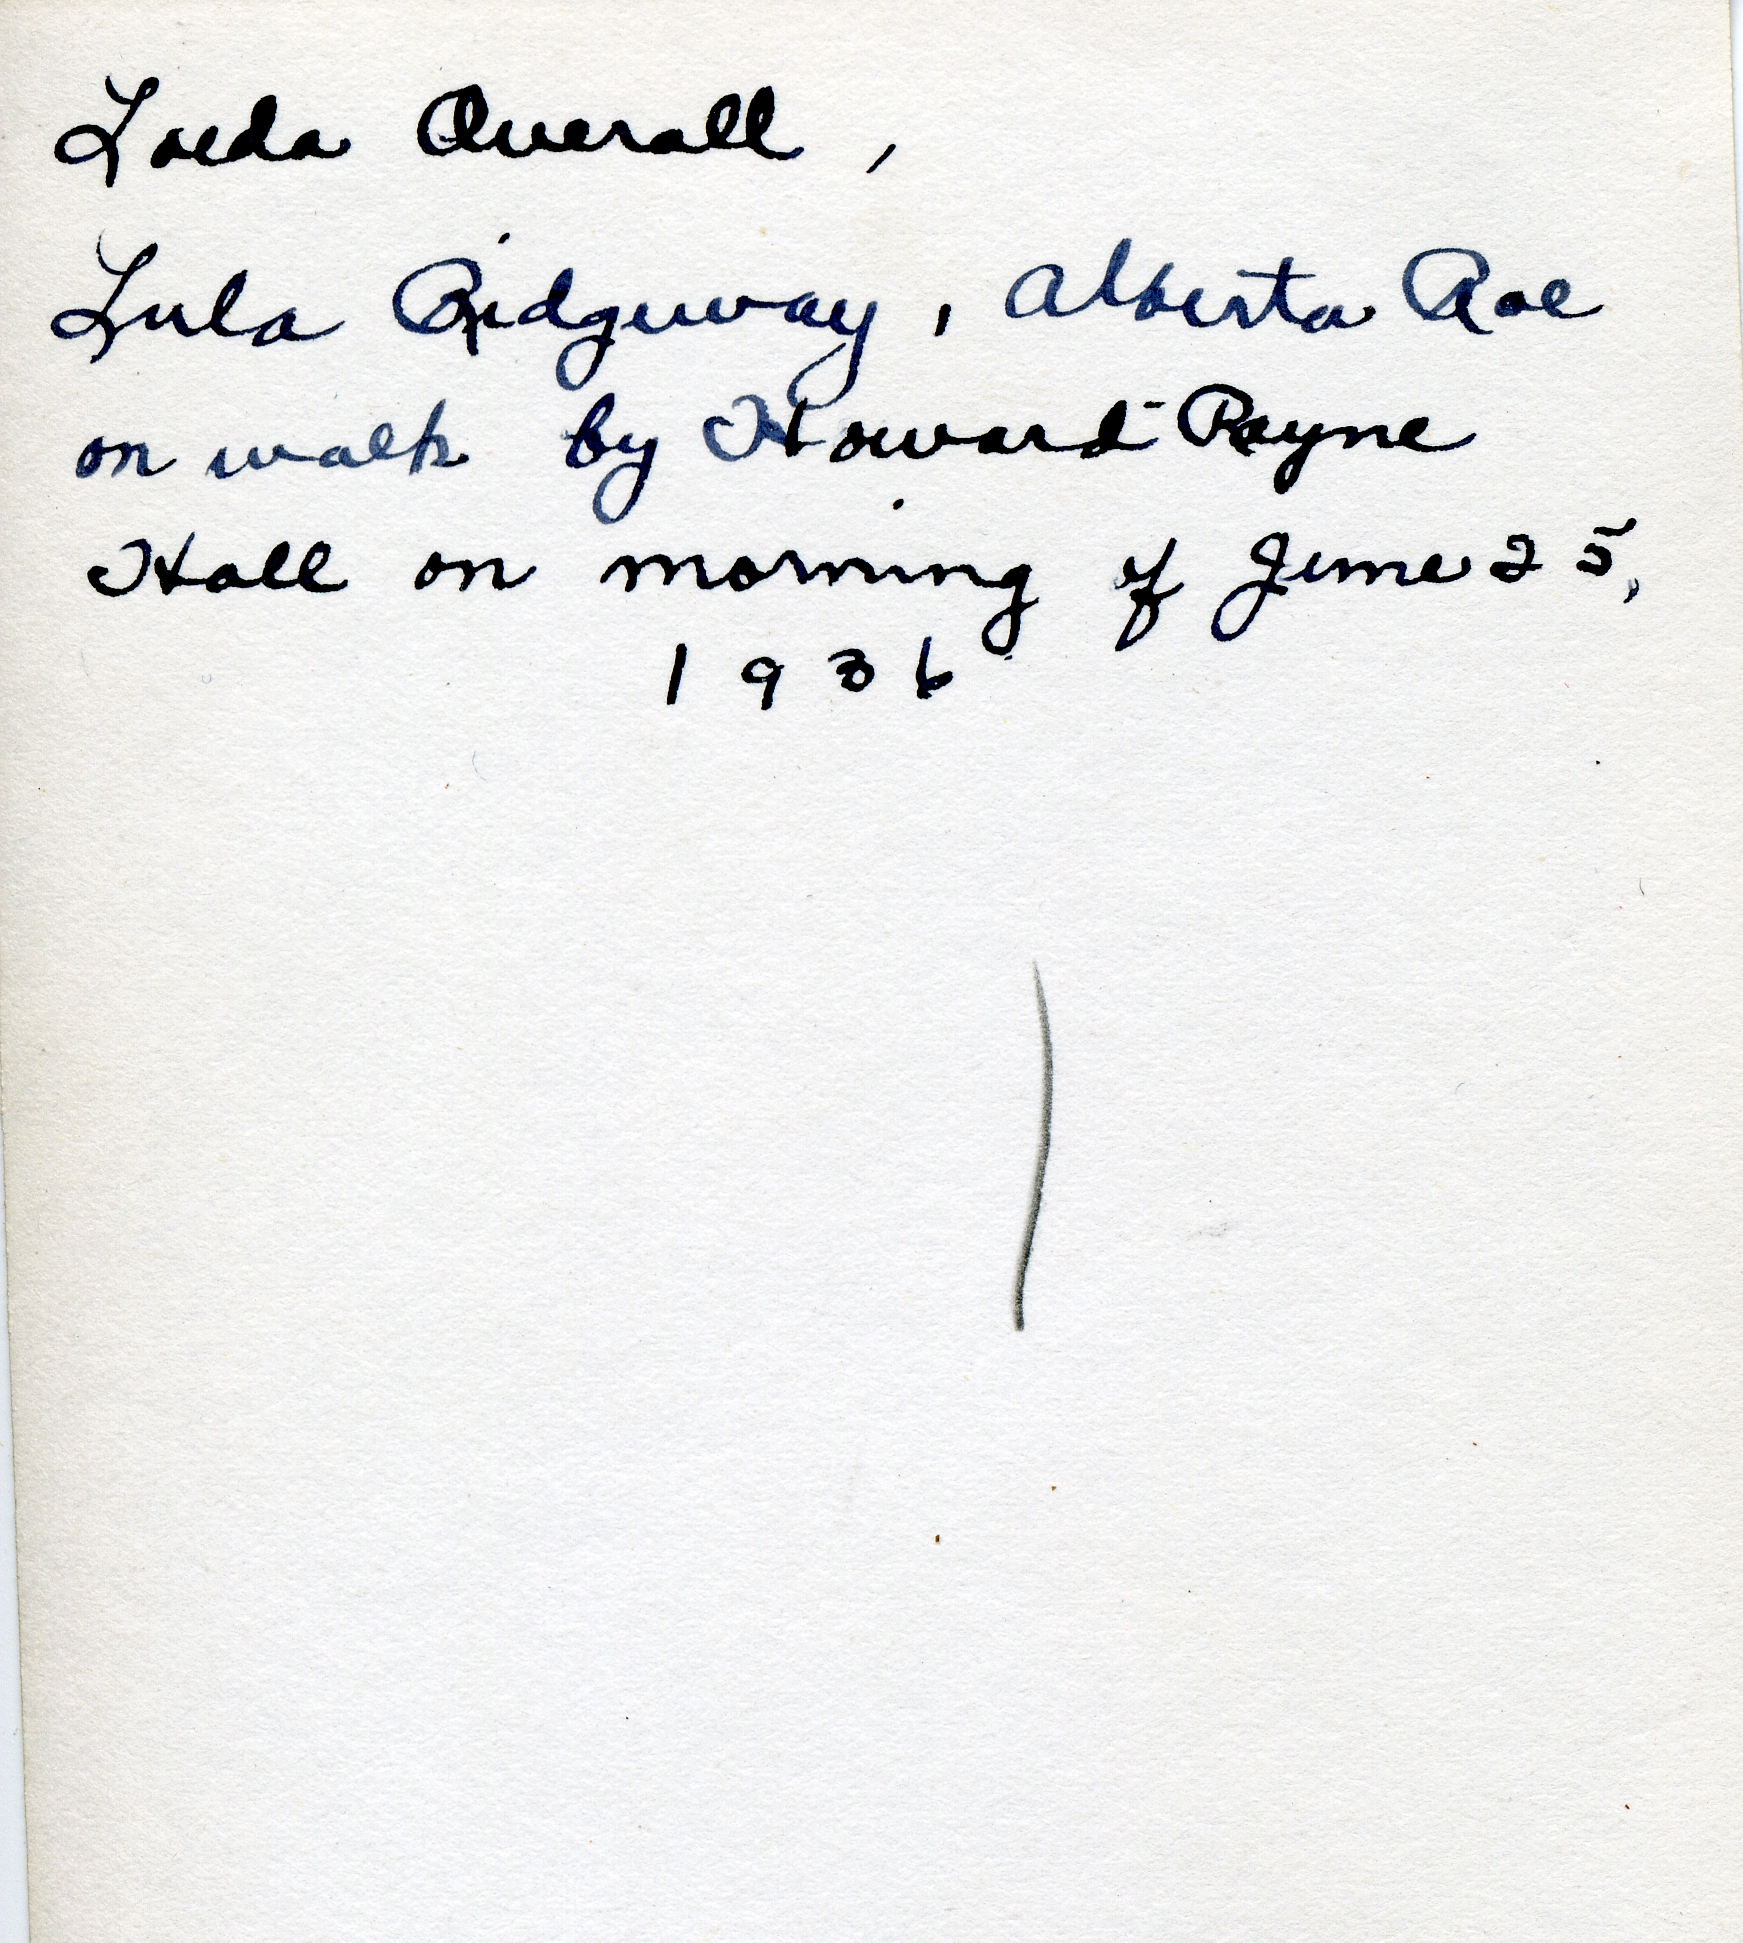 Loeda Overall,
Lula Ridgeway, Alberta Roe
on walk by Howard-Payne
Hall on morning of June 25,
1936